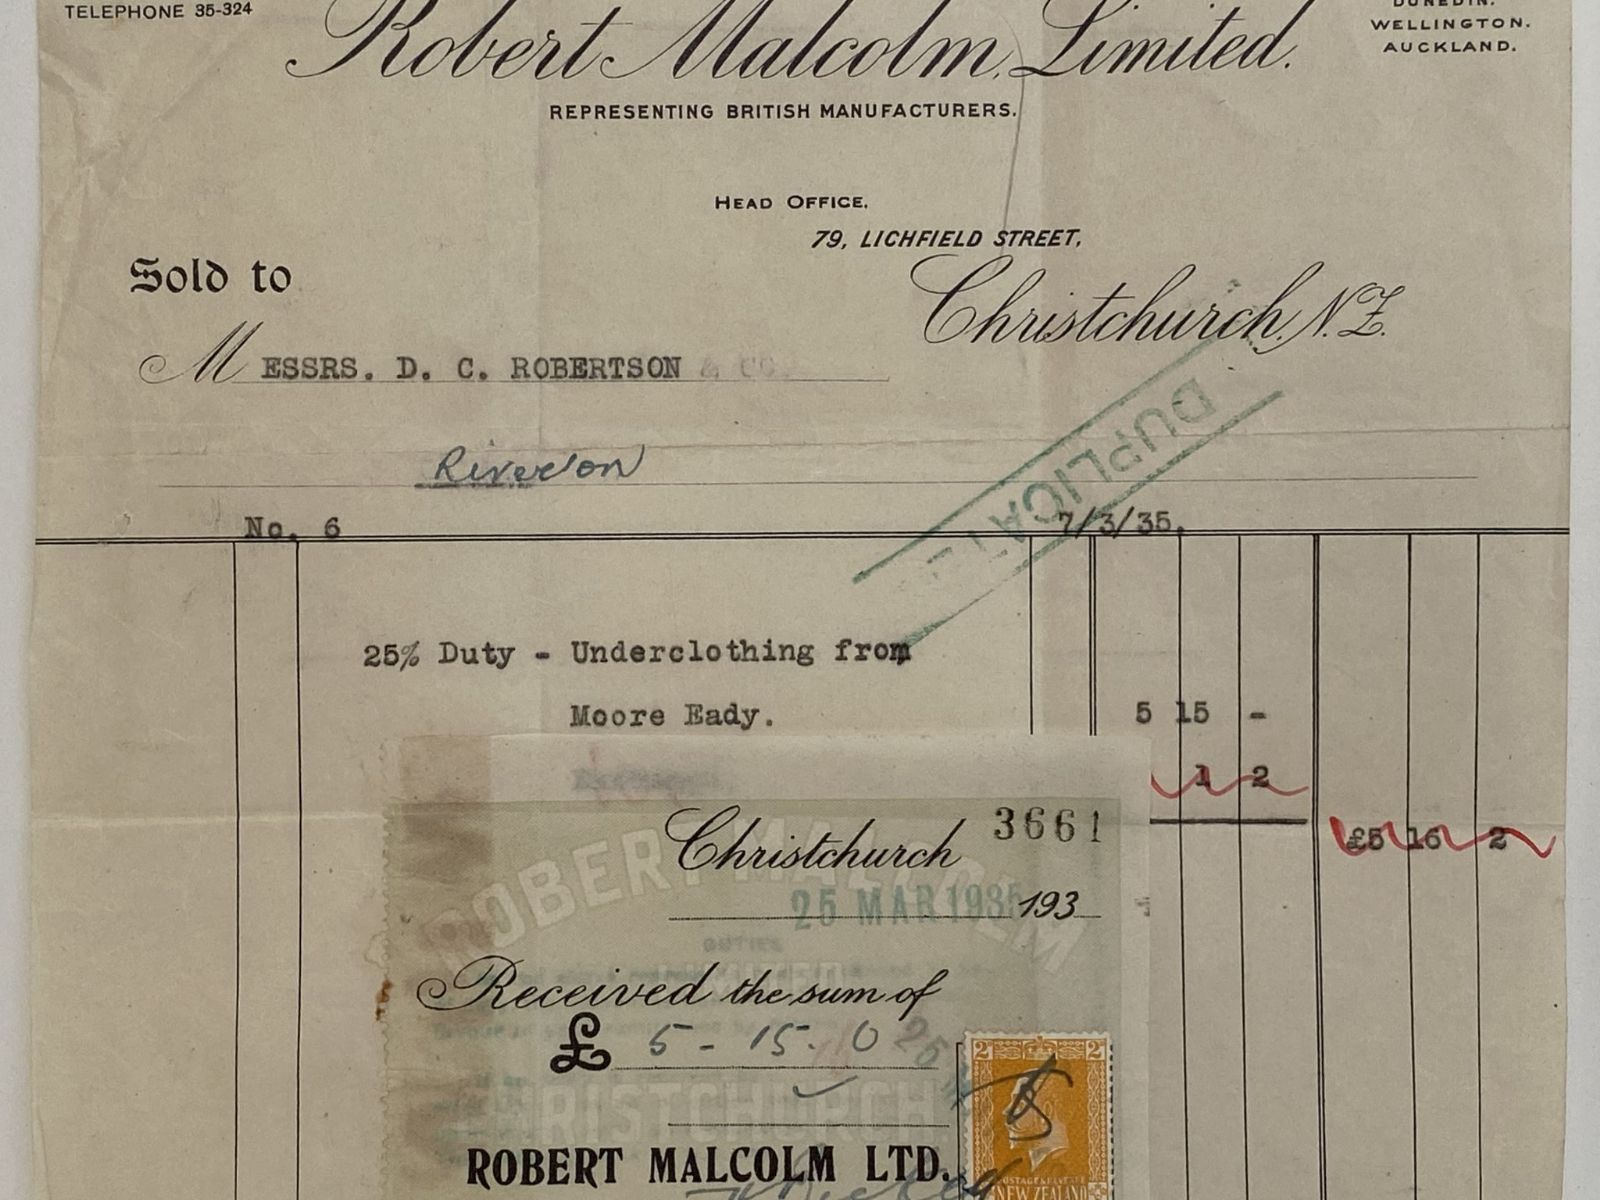 TELEPHONE 35-324
Robert Malcolm, Limited.
DUNEDIN.
WELLINGTON.
AUCKLAND.
REPRESENTING BRITISH MANUFACTURERS.
HEAD OFFICE,
79, LICHFIELD STREET,
Christchurch, N.Z.
Sold to
MESSRS. D. C. ROBERTSON & CO.
DUPLICATE
No. 6
7/3/35.
25% Duty - Underclothing from
Moore Eady. 5 15 -
1 2
£5 16 2
Christchurch 3661
25 MAR 1935 193
ROBERT MALCOLM
LIMITED
Received the sum of
£ 5 - 15 - 0
CHRISTCHURCH
ROBERT MALCOLM LTD.
2 2
POSTAGE & REVENUE
NEW ZEALAND